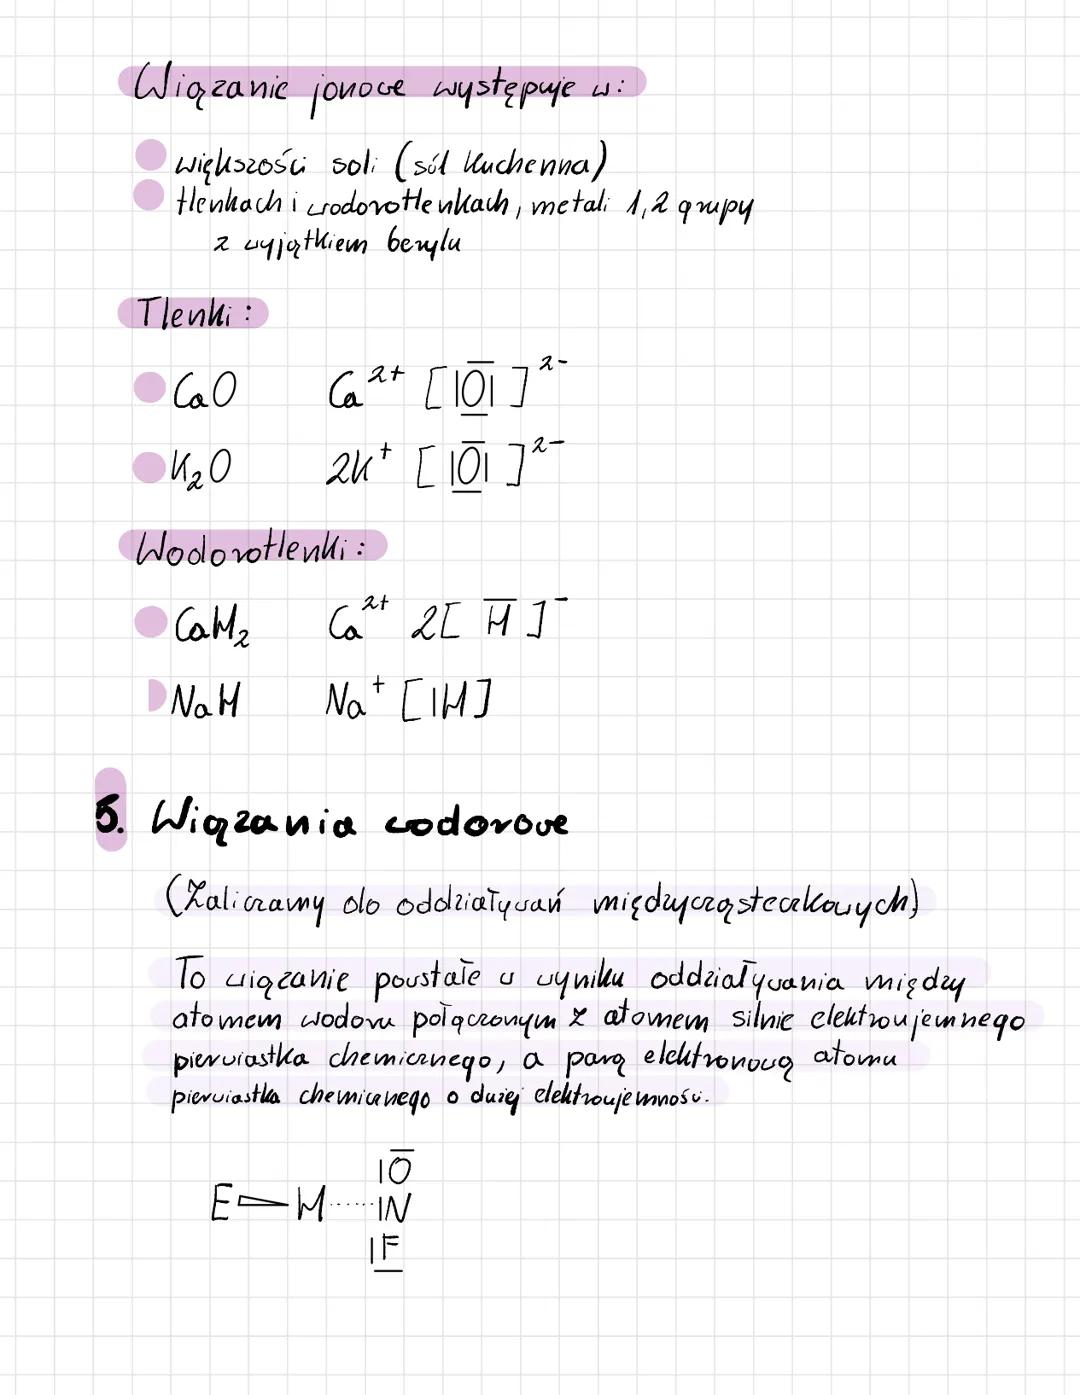 Wiązanie jonowe występuje w:
większości soli (sól kuchenna)
tlenkach i wodorotlenkach, metali 1,2 grupy
z wyjątkiem berylu
Tlenki:
CaO Ca²⁺ [|O̲̅|]²⁻
K₂O 2K⁺ [|O̲̅|]²⁻
Wodorotlenki:
CaH₂ Ca²⁺ 2[H̅]⁻
NaH Na⁺ [|H]
5. Wiązania wodorowe
(Zaliczamy do oddziaływań międzycząsteczkowych)
To wiązanie powstałe w wyniku oddziaływania między
atomem wodoru połączonym z atomem silnie elektroujemnego
pierwiastka chemicznego, a parą elektronową atomu
pierwiastka chemicznego o dużej elektroujemności.
|O̅
E H ······ |N
|F̲